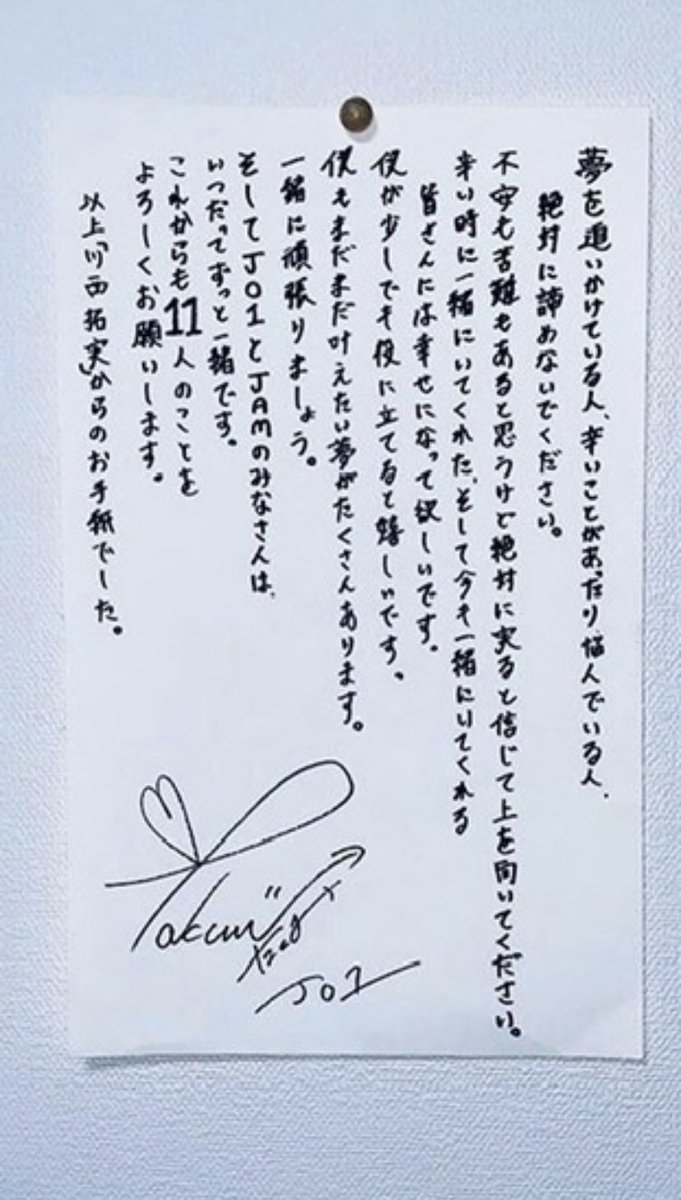 夢を追いかけている人、辛いことがあったり悩んでいる人、
絶対に諦めないでください。
不安も苦難もあると思うけど絶対に実ると信じて上を向いてください。
辛い時に一緒にいてくれた、そして今も一緒にいてくれる
皆さんには幸せになって欲しいです。
僕が少しでも役に立てると嬉しいです。
僕もまだまだ叶えたい夢がたくさんあります。
一緒に頑張りましょう。
そしてJO1とJAMのみなさんは、
いつだってずっと一緒です。
これからも11人のことを
よろしくお願いします。
以上「川西拓実」からのお手紙でした。
Takumi
JO1